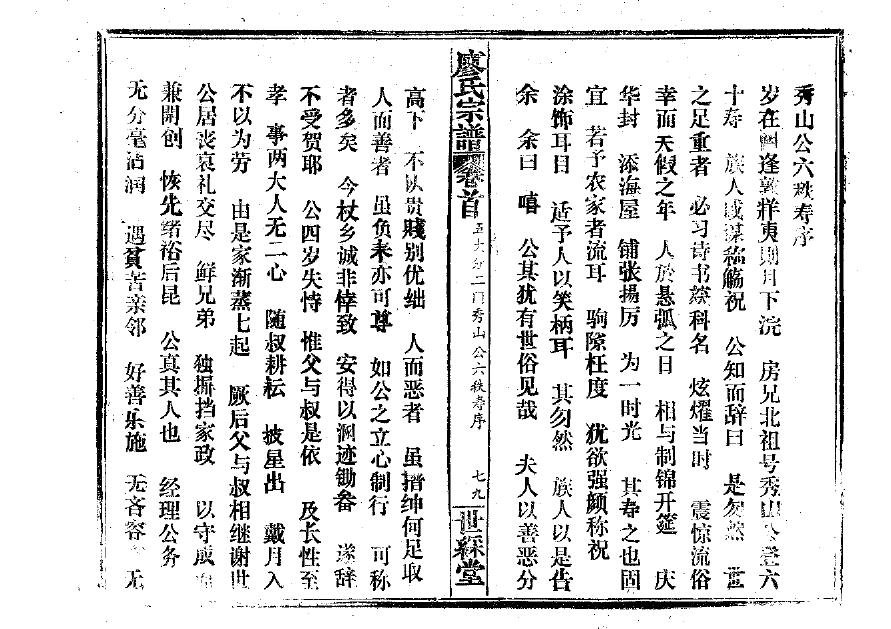 秀山公六秩寿序
岁在阏逢敦牂夷则月下浣 房兄北祖号秀山公登六
十寿 族人咸谋称觞祝 公知而辞曰 是勿然 世
之足重者 必习诗书掇科名 炫耀当时 震惊流俗
幸而天假之年 人於悬弧之日 相与制锦开筵 庆
华封 添海屋 铺张揚厉 为一时光 其寿之也固
宜 若予农家者流耳 驹隙枉度 犹欲强颜称祝
涂饰耳目 适予人以笑柄耳 其勿然 族人以是告
余 余曰 嘻 公其犹有世俗见哉 夫人以善恶分
廖氏宗譜 卷首 二门秀山公六秩寿序 七九 世綵堂
高下 不以贵賤别优绌 人而恶者 虽搢绅何足取
人而善者 虽负耒亦可尊 如公之立心制行 可称
者多矣 今杖乡诚非倖致 安得以溷迹锄畚 遂辞
不受贺耶 公四岁失恃 惟父与叔是依 及长性至
孝 事两大人无二心 随叔耕耘 披星出 戴月入
不以为劳 由是家渐蒸上起 厥后父与叔相继谢世
公居丧哀礼交尽 鲜兄弟 独摒挡家政 以守成
兼開创 恢先绪裕后昆 公真其人也 经理公务
无分毫沾润 遇貧苦亲邻 好善乐施 无吝容 无